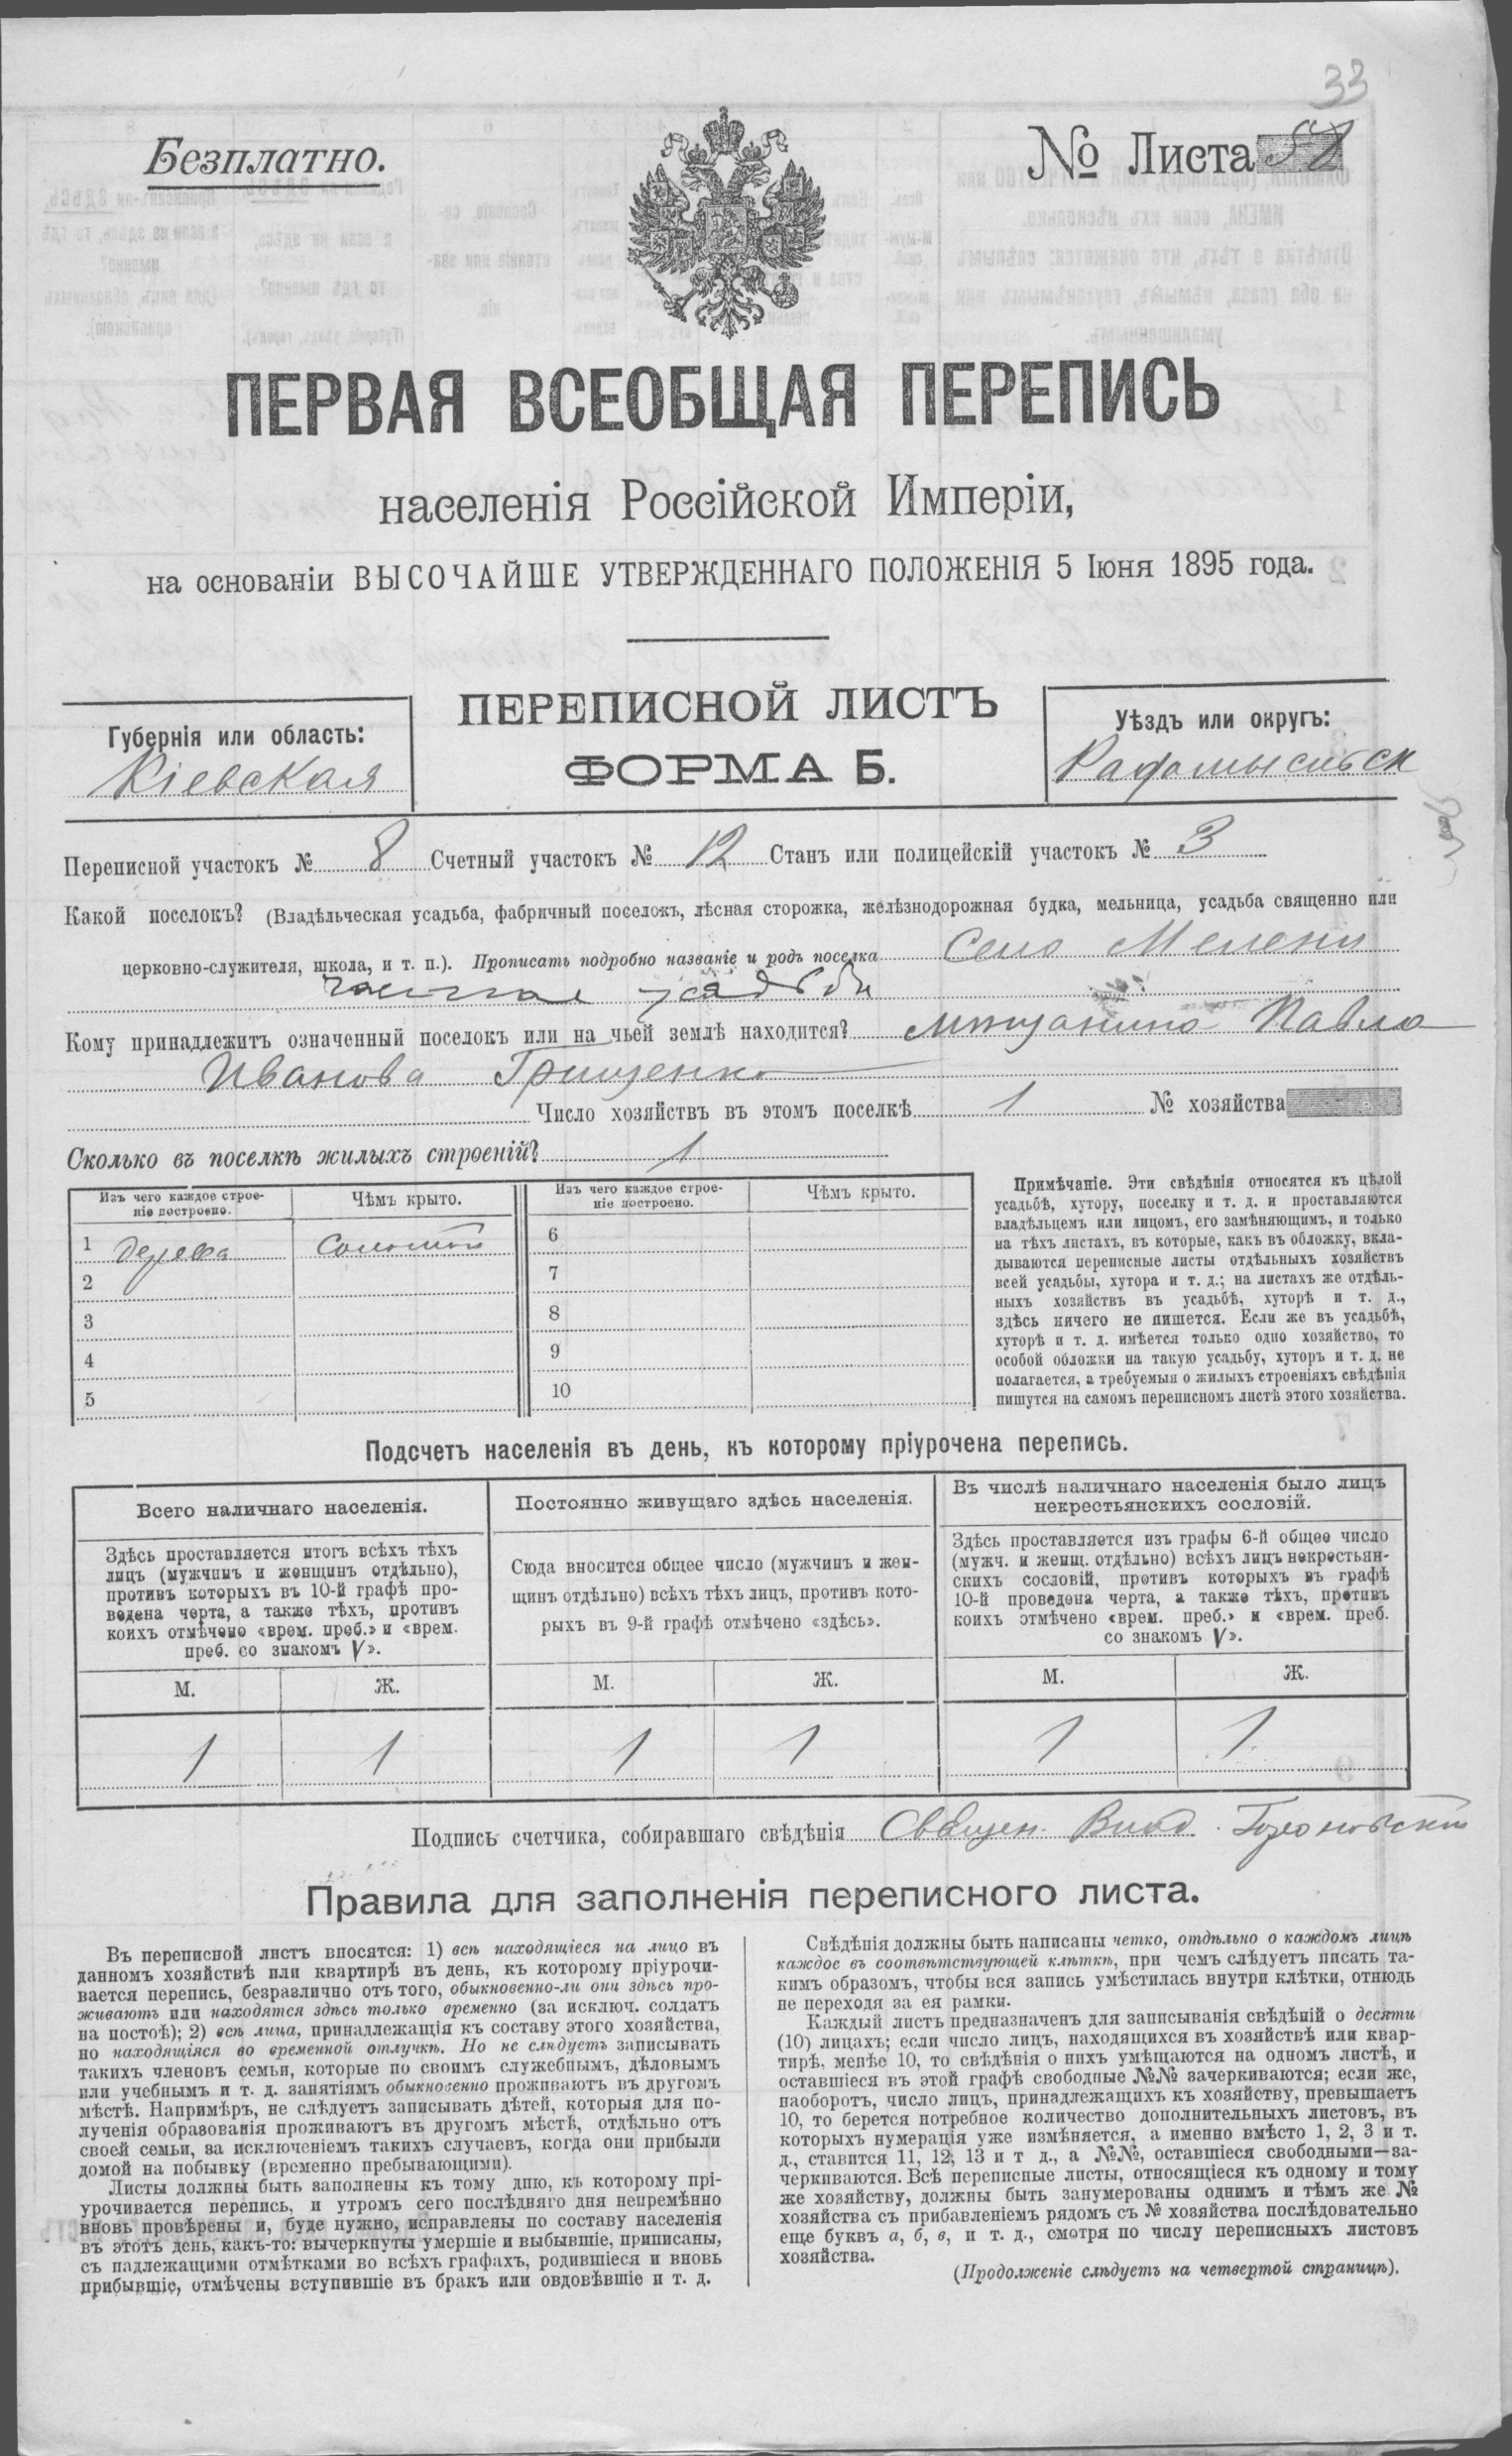 33
Безплатно.
№ Листа
ПЕРВАЯ ВСЕОБЩАЯ ПЕРЕПИСЬ
населенія Россійской Имперіи,
на основаніи ВЫСОЧАЙШЕ УТВЕРЖДЕННАГО ПОЛОЖЕНІЯ 5 Іюня 1895 года.
ПЕРЕПИСНОЙ ЛИСТЪ
ФОРМА Б.
Губернія или область:
Кіевская
Уѣздъ или округъ:
Радомысльск
Переписной участокъ № 8 Счетный участокъ № 12 Станъ или полицейскій участокъ № 3
Какой поселокъ? (Владѣльческая усадьба, фабричный поселокъ, лѣсная сторожка, желѣзнодорожная будка, мельница, усадьба священно или
церковно-служителя, школа, и т. п.). Прописать подробно названіе и родъ поселка Село Мелени
усадьба
Кому принадлежитъ означенный поселокъ или на чьей землѣ находится? мѣщанина Павла
Иванова Грищенко
Число хозяйствъ въ этомъ поселкѣ 1 № хозяйства
Сколько въ поселкѣ жилыхъ строеній? 1
Изъ чего каждое строе-
ніе построено.
Чѣмъ крыто.
Изъ чего каждое строе-
ніе построено.
Чѣмъ крыто.
1 дерева соломой
2
3
4
5
6
7
8
9
10
Примѣчаніе. Эти свѣдѣнія относятся къ цѣлой
усадьбѣ, хутору, поселку и т. д. и проставляются
владѣльцемъ или лицомъ, его замѣняющимъ, и только
на тѣхъ листахъ, въ которые, какъ въ обложку, вкла-
дываются переписные листы отдѣльныхъ хозяйствъ
всей усадьбы, хутора и т. д.; на листахъ же отдѣль-
ныхъ хозяйствъ въ усадьбѣ, хуторѣ и т. д.,
здѣсь ничего не пишется. Если же въ усадьбѣ,
хуторѣ и т. д. имѣется только одно хозяйство, то
особой обложки на такую усадьбу, хуторъ и т. д. не
полагается, а требуемыя о жилыхъ строеніяхъ свѣдѣнія
пишутся на самомъ переписномъ листѣ этого хозяйства.
Подсчетъ населенія въ день, къ которому пріурочена перепись.
Всего наличнаго населенія.
Здѣсь проставляется итогъ всѣхъ тѣхъ
лицъ (мужчинъ и женщинъ отдѣльно),
противъ которыхъ въ 10-й графѣ про-
ведена черта, а также тѣхъ, противъ
коихъ отмѣчено «врем. преб.» и «врем.
преб. со знакомъ V».
М. Ж.
1 1
Постоянно живущаго здѣсь населенія.
Сюда вносится общее число (мужчинъ и жен-
щинъ отдѣльно) всѣхъ тѣхъ лицъ, противъ кото-
рыхъ въ 9-й графѣ отмѣчено «здѣсь».
М. Ж.
1 1
Въ числѣ наличнаго населенія было лицъ
некрестьянскихъ сословій.
Здѣсь проставляется изъ графы 6-й общее число
(мужч. и женщ. отдѣльно) всѣхъ лицъ некрестьян-
скихъ сословій, противъ которыхъ въ графѣ
10-й проведена черта, а также тѣхъ, противъ
коихъ отмѣчено «врем. преб.» и «врем. преб.
со знакомъ V».
М. Ж.
1 1
Подпись счетчика, собиравшаго свѣдѣнія Священ.
Правила для заполненія переписного листа.
Въ переписной листъ вносятся: 1) всѣ находящіеся на лицо въ
данномъ хозяйствѣ или квартирѣ въ день, къ которому пріурочи-
вается перепись, безразлично отъ того, обыкновенно-ли они здѣсь про-
живаютъ или находятся здѣсь только временно (за исключ. солдатъ
на постоѣ); 2) всѣ лица, принадлежащія къ составу этого хозяйства,
но находящіяся во временной отлучкѣ. Но не слѣдуетъ записывать
такихъ членовъ семьи, которые по своимъ служебнымъ, дѣловымъ
или учебнымъ и т. д. занятіямъ обыкновенно проживаютъ въ другомъ
мѣстѣ. Напримѣръ, не слѣдуетъ записывать дѣтей, которыя для по-
лученія образованія проживаютъ въ другомъ мѣстѣ, отдѣльно отъ
своей семьи, за исключеніемъ такихъ случаевъ, когда они прибыли
домой на побывку (временно пребывающими).
Листы должны быть заполнены къ тому дню, къ которому прі-
урочивается перепись, и утромъ сего послѣдняго дня непремѣнно
вновь провѣрены и, буде нужно, исправлены по составу населенія
въ этотъ день, какъ-то: вычеркнуты умершіе и выбывшіе, приписаны,
съ надлежащими отмѣтками во всѣхъ графахъ, родившіеся и вновь
прибывшіе, отмѣчены вступившіе въ бракъ или овдовѣвшіе и т. д.
Свѣдѣнія должны быть написаны четко, отдѣльно о каждомъ лицѣ
каждое въ соотвѣтствующей клѣткѣ, при чемъ слѣдуетъ писать та-
кимъ образомъ, чтобы вся запись умѣстилась внутри клѣтки, отнюдь
не переходя за ея рамки.
Каждый листъ предназначенъ для записыванія свѣдѣній о десяти
(10) лицахъ; если число лицъ, находящихся въ хозяйствѣ или квар-
тирѣ, менѣе 10, то свѣдѣнія о нихъ умѣщаются на одномъ листѣ, и
оставшіеся въ этой графѣ свободные №№ зачеркиваются; если же,
наоборотъ, число лицъ, принадлежащихъ къ хозяйству, превышаетъ
10, то берется потребное количество дополнительныхъ листовъ, въ
которыхъ нумерація уже измѣняется, а именно вмѣсто 1, 2, 3 и т.
д., ставится 11, 12, 13 и т д., а №№, оставшіеся свободными—за-
черкиваются. Всѣ переписные листы, относящіеся къ одному и тому
же хозяйству, должны быть занумерованы однимъ и тѣмъ же №
хозяйства съ прибавленіемъ рядомъ съ № хозяйства послѣдовательно
еще буквъ а, б, в, и т. д., смотря по числу переписныхъ листовъ
хозяйства.
(Продолженіе слѣдуетъ на четвертой страницѣ).